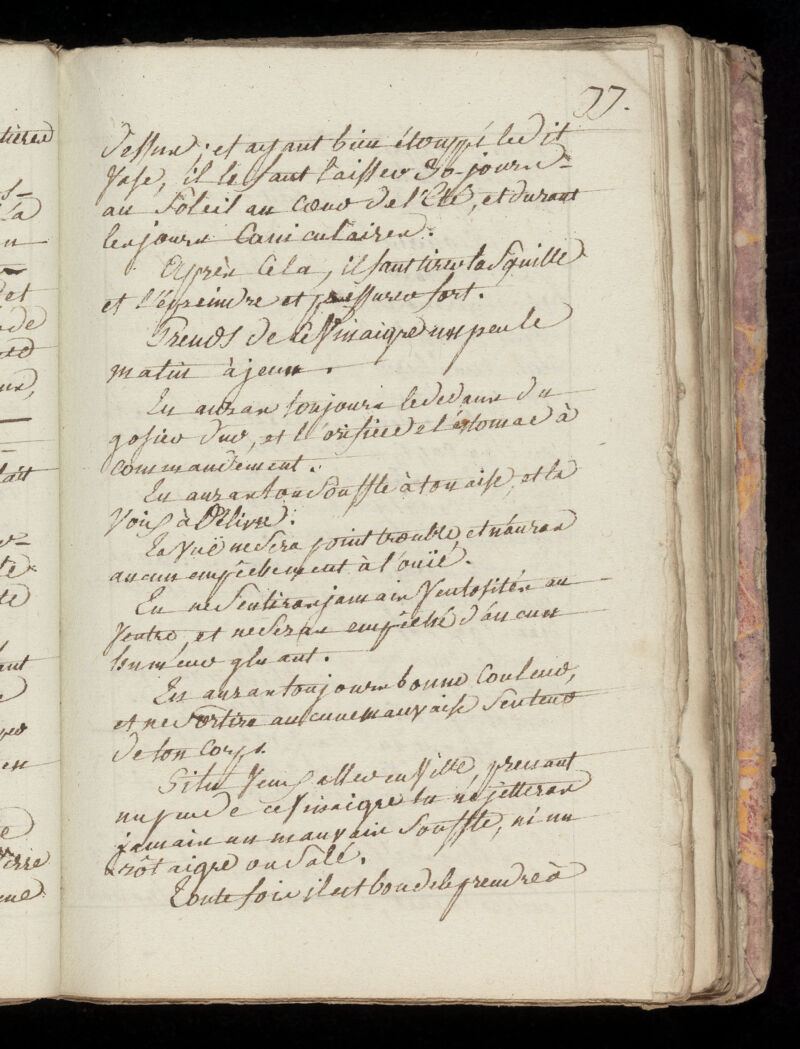 77.
dessus; et ayant bien étouppé le dit
Vase, il le faut laisser 30-jours-
au Soleil au cœur de l'Eté, et durant
les jours Caniculaires.
Après Cela, il faut tirer la Squille
et l'épreindre et pressurer fort.
Prends de ce Vinaigre un peu le
matin à jeun.
Tu auras toujours le dedans du
gosier dur, et l'orifice de l'éstomac à
commandement.
Tu auras ton Souffle à ton aise, et la
Voix à Délivre.
Ta Vuë ne Sera point trouble, et n'auras
aucun empêchement à l'ouïë.
Tu ne Sentiras jamais Ventosités au
Ventre, et ne Seras empêché d'aucun
humeur gluant.
Tu auras toujours bonne Couleur,
et ne Sortira aucune mauvaise Senteur
de ton corps.
Si tu Veux aller en Ville, prenant
un peu de ce Vinaigre tu ne jetteras
jamais un mauvais Souffle, ni un
rôt aigre ou Salé.
Toutefois il est bon de le prendre à
tières
La
et
de
ant